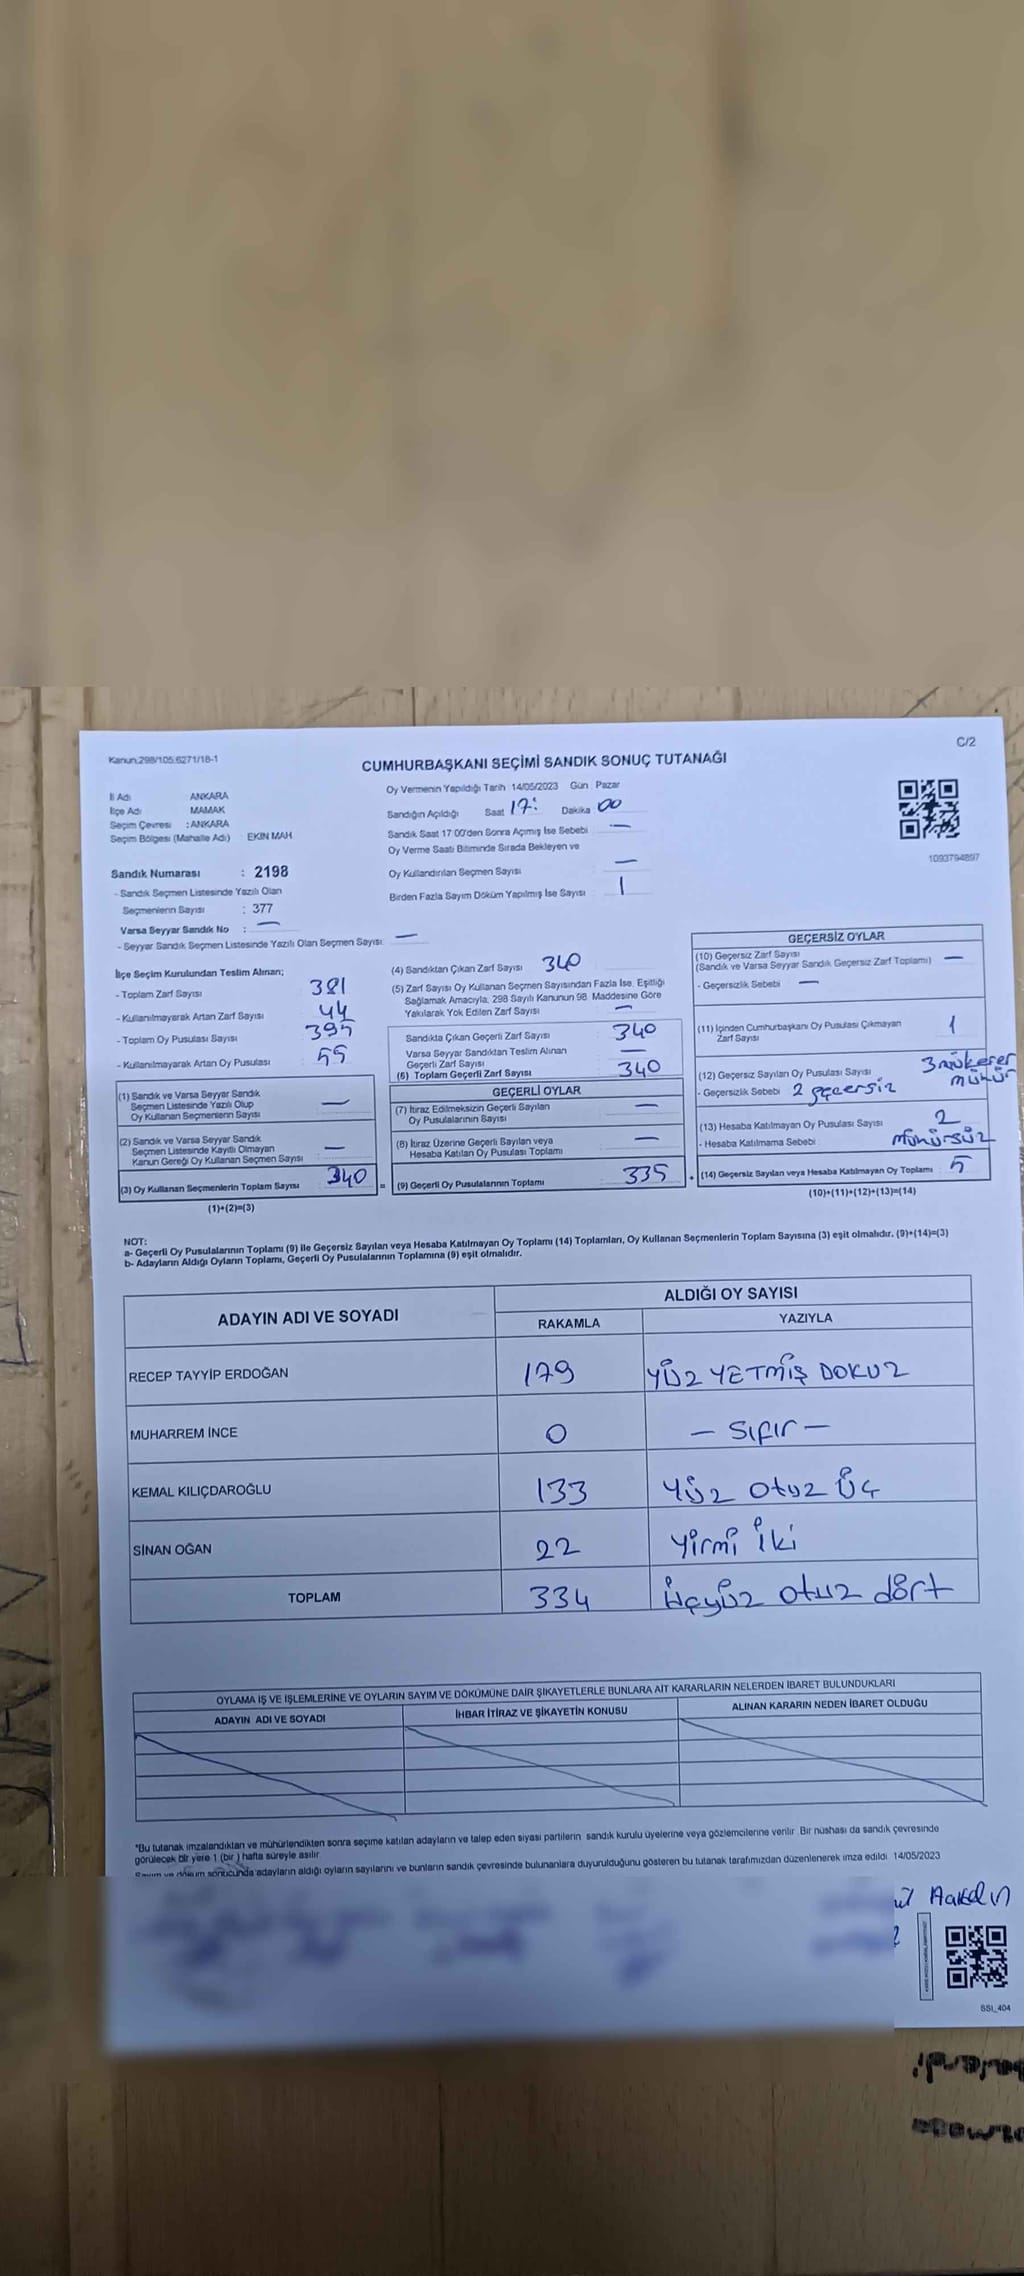 Kanun:298/105,6271/18-1
C/2
CUMHURBAŞKANI SEÇİMİ SANDIK SONUÇ TUTANAĞI
İl Adı ANKARA
İlçe Adı MAMAK
Seçim Çevresi : ANKARA
Seçim Bölgesi (Mahalle Adı) : EKİN MAH
Sandık Numarası : 2198
- Sandık Seçmen Listesinde Yazılı Olan
Seçmenlerin Sayısı : 377
Varsa Seyyar Sandık No : —
- Seyyar Sandık Seçmen Listesinde Yazılı Olan Seçmen Sayısı: —
Oy Vermenin Yapıldığı Tarih 14/05/2023 Gün Pazar
Sandığın Açıldığı Saat 17: Dakika 00
Sandık Saat 17 00'den Sonra Açımış İse Sebebi —
Oy Verme Saati Bitiminde Sırada Bekleyen ve
Oy Kullandırılan Seçmen Sayısı —
Birden Fazla Sayım Döküm Yapılmış İse Sayısı 1
1093794897
İlçe Seçim Kurulundan Teslim Alınan;
- Toplam Zarf Sayısı 381
- Kullanılmayarak Artan Zarf Sayısı 44
- Toplam Oy Pusulası Sayısı 395
- Kullanılmayarak Artan Oy Pusulası 55
(1) Sandık ve Varsa Seyyar Sandık
Seçmen Listesinde Yazılı Olup
Oy Kullanan Seçmenlerin Sayısı —
(2) Sandık ve Varsa Seyyar Sandık
Seçmen Listesinde Kayıtlı Olmayan
Kanun Gereği Oy Kullanan Seçmen Sayısı —
(3) Oy Kullanan Seçmenlerin Toplam Sayısı 340 =
(1)+(2)=(3)
(4) Sandıktan Çıkan Zarf Sayısı 340
(5) Zarf Sayısı Oy Kullanan Seçmen Sayısından Fazla İse, Eşitliği
Sağlamak Amacıyla, 298 Sayılı Kanunun 98. Maddesine Göre
Yakılarak Yok Edilen Zarf Sayısı —
Sandıkta Çıkan Geçerli Zarf Sayısı 340
Varsa Seyyar Sandıktan Teslim Alınan
Geçerli Zarf Sayısı —
(6) Toplam Geçerli Zarf Sayısı 340
GEÇERLİ OYLAR
(7) İtiraz Edilmeksizin Geçerli Sayılan
Oy Pusulalarının Sayısı —
(8) İtiraz Üzerine Geçerli Sayılan veya
Hesaba Katılan Oy Pusulası Toplamı —
(9) Geçerli Oy Pusulalarının Toplamı 335 +
GEÇERSİZ OYLAR
(10) Geçersiz Zarf Sayısı
(Sandık ve Varsa Seyyar Sandık Geçersiz Zarf Toplamı) —
- Geçersizlik Sebebi —
(11) İçinden Cumhurbaşkanı Oy Pusulası Çıkmayan
Zarf Sayısı 1
(12) Geçersiz Sayılan Oy Pusulası Sayısı 3 mükerer
- Geçersizlik Sebebi 2 geçersiz mühür
(13) Hesaba Katılmayan Oy Pusulası Sayısı 2
- Hesaba Katılmama Sebebi : mühürsüz
(14) Geçersiz Sayılan veya Hesaba Katılmayan Oy Toplamı 5
(10)+(11)+(12)+(13)=(14)
NOT:
a- Geçerli Oy Pusulalarının Toplamı (9) ile Geçersiz Sayılan veya Hesaba Katılmayan Oy Toplamı (14) Toplamları, Oy Kullanan Seçmenlerin Toplam Sayısına (3) eşit olmalıdır. (9)+(14)=(3)
b- Adayların Aldığı Oyların Toplamı, Geçerli Oy Pusulalarının Toplamına (9) eşit olmalıdır.
ADAYIN ADI VE SOYADI ALDIĞI OY SAYISI
RAKAMLA YAZIYLA
RECEP TAYYİP ERDOĞAN 179 YÜZ YETMİŞ DOKUZ
MUHARREM İNCE 0 — Sıfır —
KEMAL KILIÇDAROĞLU 133 YÜZ Otuz Üç
SİNAN OĞAN 22 Yirmi iki
TOPLAM 334 üçyüz otuz dört
OYLAMA İŞ VE İŞLEMLERİNE VE OYLARIN SAYIM VE DÖKÜMÜNE DAİR ŞİKAYETLERLE BUNLARA AİT KARARLARIN NELERDEN İBARET BULUNDUKLARI
ADAYIN ADI VE SOYADI İHBAR İTİRAZ VE ŞİKAYETİN KONUSU ALINAN KARARIN NEDEN İBARET OLDUĞU
*Bu tutanak imzalandıktan ve mühürlendikten sonra seçime katılan adayların ve talep eden siyasi partilerin sandık kurulu üyelerine veya gözlemcilerine verilir. Bir nüshası da sandık çevresinde
görülecek bir yere 1 (bir ) hafta süreyle asılır.
Sayım ve döküm sonucunda adayların aldığı oyların sayılarını ve bunların sandık çevresinde bulunanlara duyurulduğunu gösteren bu tutanak tarafımızdan düzenlenerek imza edildi. 14/05/2023
SSI_404